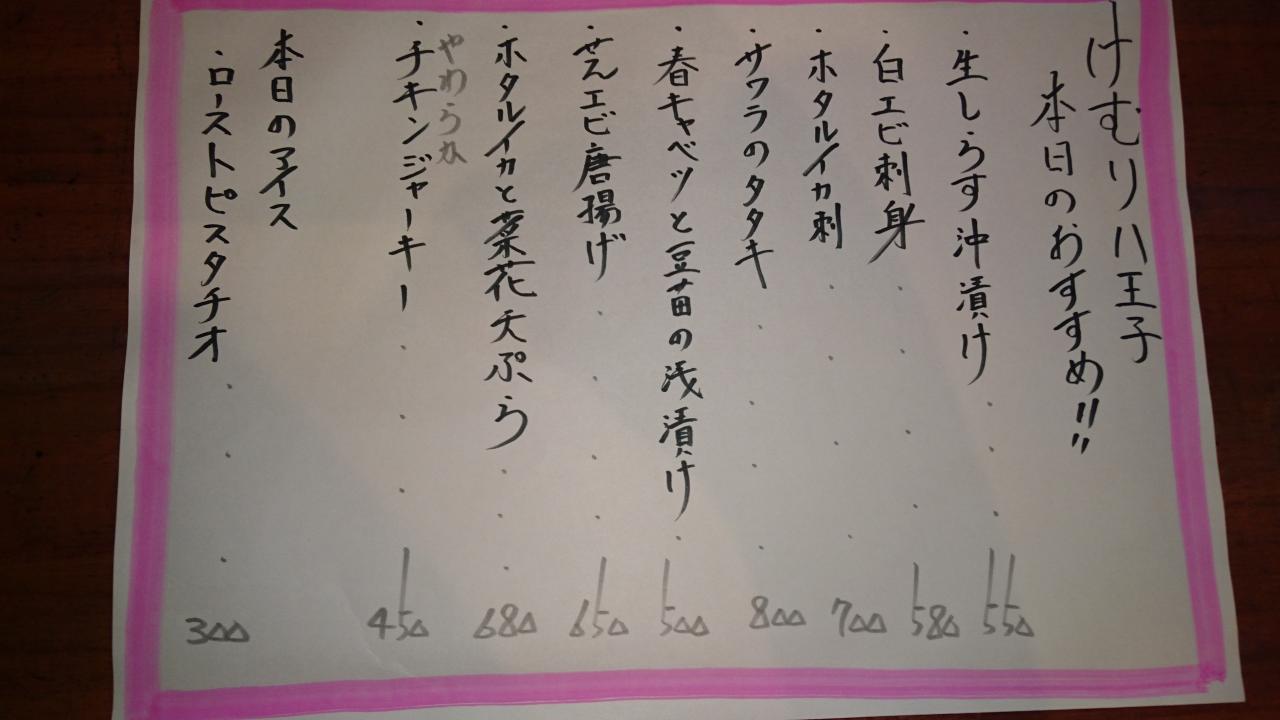 けむり八王子
本日のおすすめ!!
・生しらす沖漬け・・・550
・白エビ刺身・・・580
・ホタルイカ刺・・・700
・サワラのタタキ・・・・800
・春キャベツと豆苗の浅漬け・500
・せんエビ唐揚げ・・・・650
・ホタルイカと菜花天ぷら・・・680
やわらか
・チキンジャーキー・・・450
本日のアイス
・ローストピスタチオ・・・300